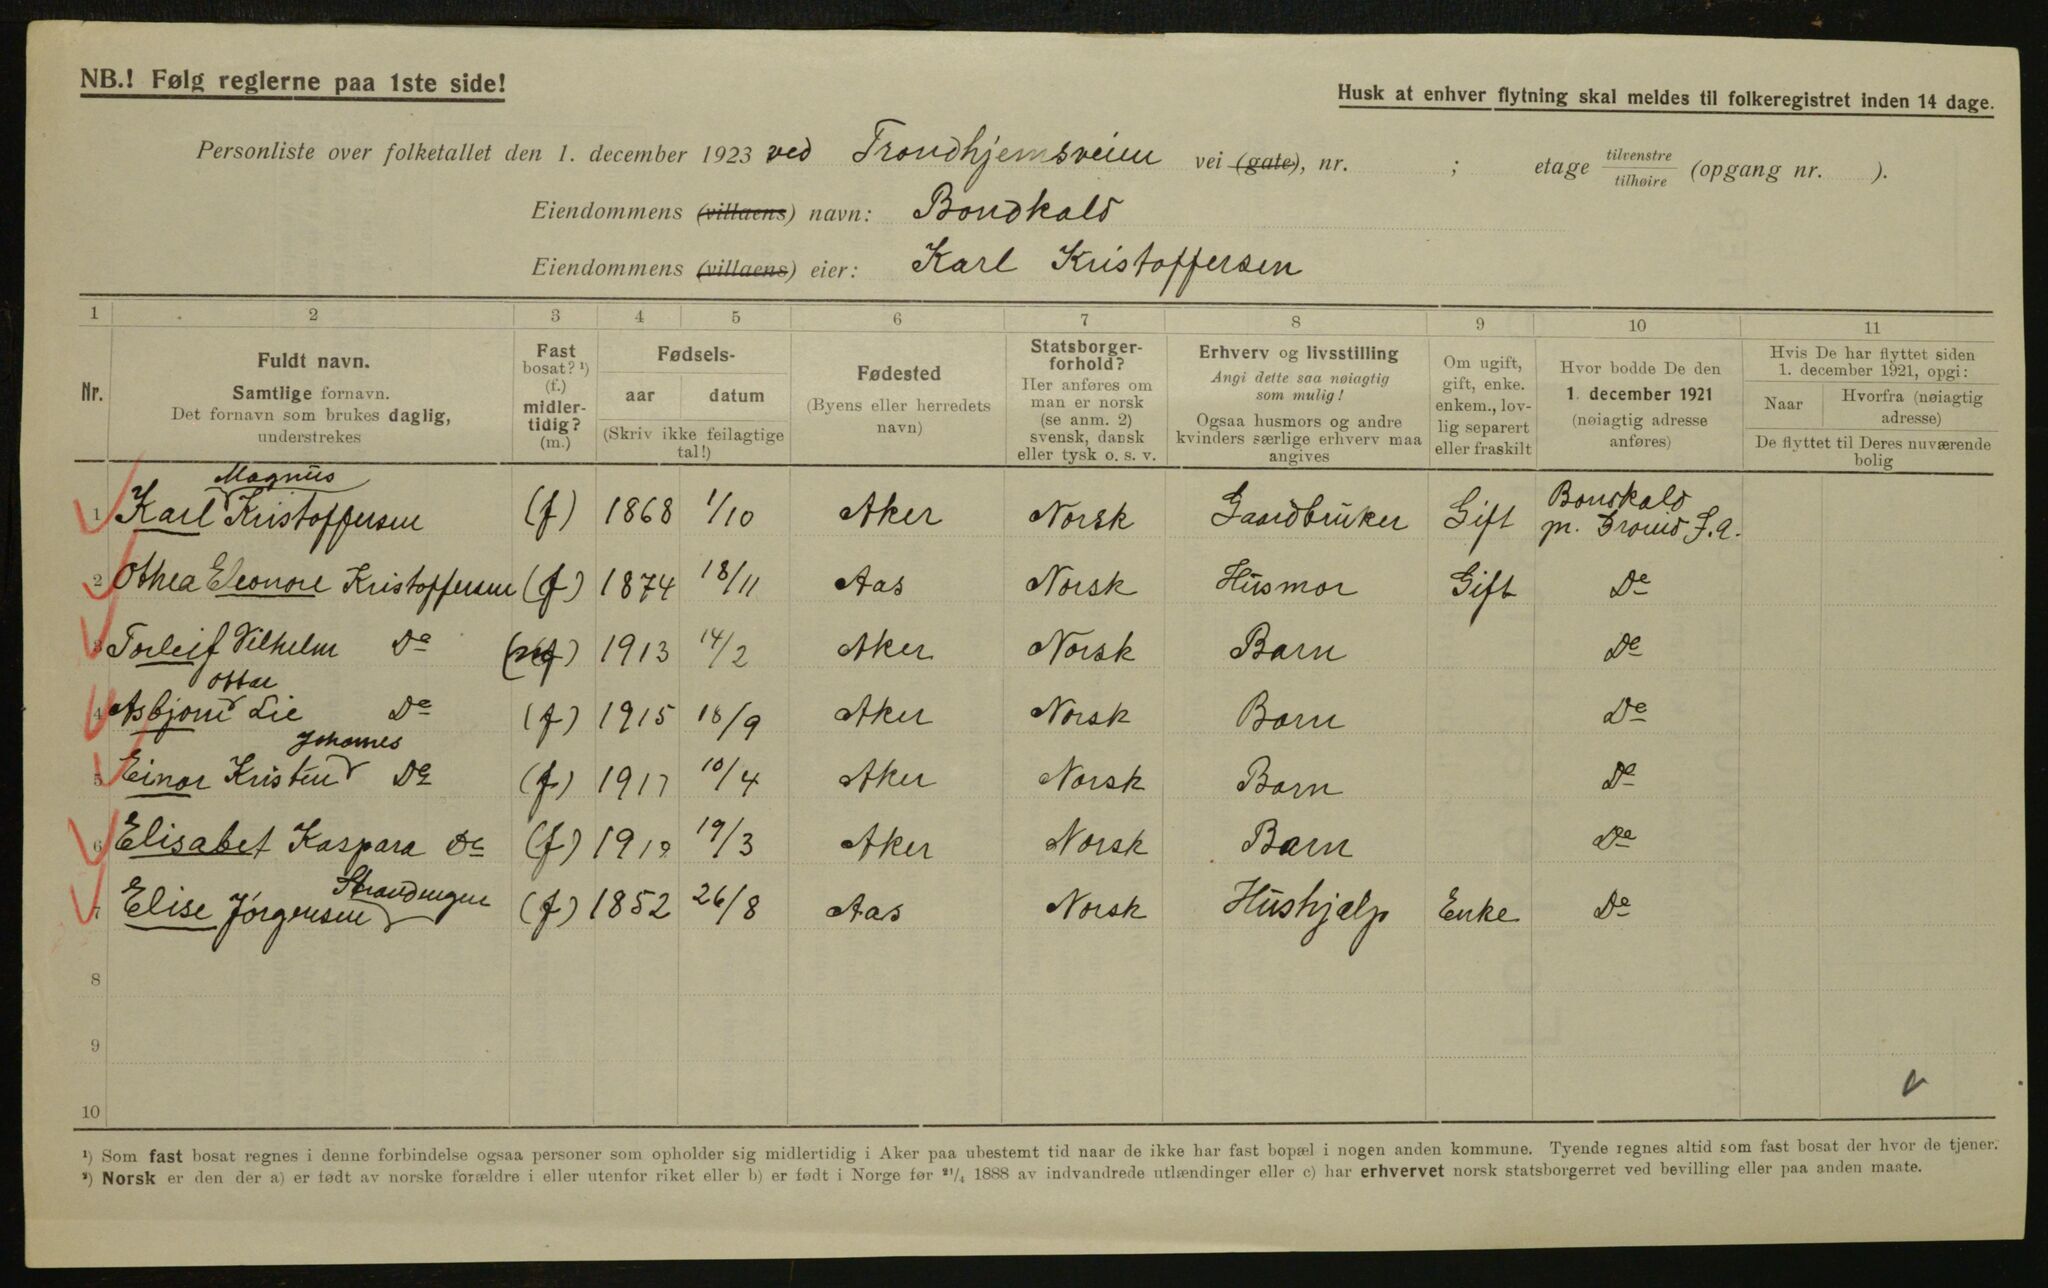 NB.! Følg reglerne paa 1ste side!
Husk at enhver flytning skal meldes til folkeregistret inden 14 dage.
Personliste over folketallet den 1. december 1923 ved Trondhjemsveien vei (gate), nr. ; etage tilvenstre tilhøire (opgang nr. ).
Eiendommens (villaens) navn: Bondkald
Eiendommens (villaens) eier: Karl Kristoffersen
1 2 3 4 5 6 7 8 9 10 11
Nr.
Fuldt navn.
Samtlige fornavn.
Det fornavn som brukes daglig,
understrekes
Fast
bosat? ¹)
(f.)
midler-
tidig?
(m.)
Fødsels-
aar datum
(Skriv ikke feilagtige
tal!)
Fødested
(Byens eller herredets
navn)
Statsborger-
forhold?
Her anføres om
man er norsk
(se anm. 2)
svensk, dansk
eller tysk o. s. v.
Erhverv og livsstilling
Angi dette saa nøiagtig
som mulig!
Ogsaa husmors og andre
kvinders særlige erhverv maa
angives
Om ugift,
gift, enke.
enkem., lov-
lig separert
eller fraskilt
Hvor bodde De den
1. december 1921
(nøiagtig adresse
anføres)
Hvis De har flyttet siden
1. december 1921, opgi:
Naar
Hvorfra (nøiagtig
adresse)
De flyttet til Deres nuværende
bolig
Magnus
1 Karl Kristoffersen (f) 1868 1/10 Aker Norsk Gaardbruker Gift Bonskald
p. Grorud S.a.
2 Othea Eleonore Kristoffersen (f) 1874 18/11 Aas Norsk Husmor Gift De
3 Torleif Vilhelm De (f) 1913 14/2 Aker Norsk Barn De
Ottar
4 Asbjørn Lie De (f) 1915 18/9 Aker Norsk Barn De
Johannes
5 Einar Kristen De (f) 1917 10/4 Aker Norsk Barn De
6 Elisabet Kaspara De (f) 1919 19/3 Aker Norsk Barn De
Strandengen
7 Elise Jørgensen (f) 1852 26/8 Aas Norsk Hushjælp Enke De
8
9
10
¹) Som fast bosat regnes i denne forbindelse ogsaa personer som opholder sig midlertidig i Aker paa ubestemt tid naar de ikke har fast bopæl i nogen anden kommune. Tyende regnes altid som fast bosat der hvor de tjener.
²) Norsk er den der a) er født av norske forældre i eller utenfor riket eller b) er født i Norge før ²¹/₄ 1888 av indvandrede utlændinger eller c) har erhvervet norsk statsborgerret ved bevilling eller paa anden maate.